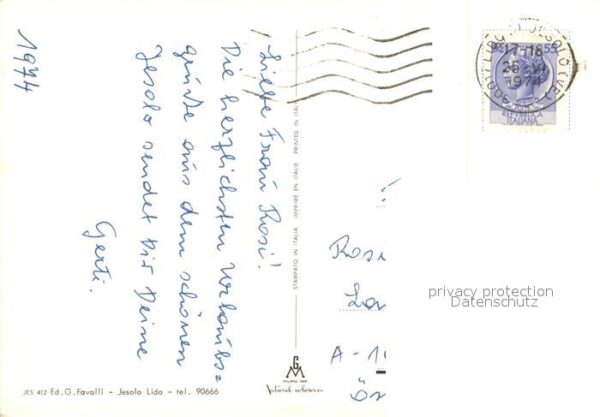 1974
Liebe Frau Rosi!
Die herzlichsten Urlaubs=
grüße aus dem schönen
Jesolo sendet Dir Deine
Gerti.
JES 412 Ed. G. Favalli - Jesolo Lido - tel. 90666
STAMPATO IN ITALIA IMPRIMÉ EN ITALIE PRINTED IN ITALY
GM
MILANO
Natural
LIDO DI JESOLO (VE)
17-18
1974
55
REPVBBLICA
ITALIANA
Rosi
A-1
privacy protection
Datenschutz